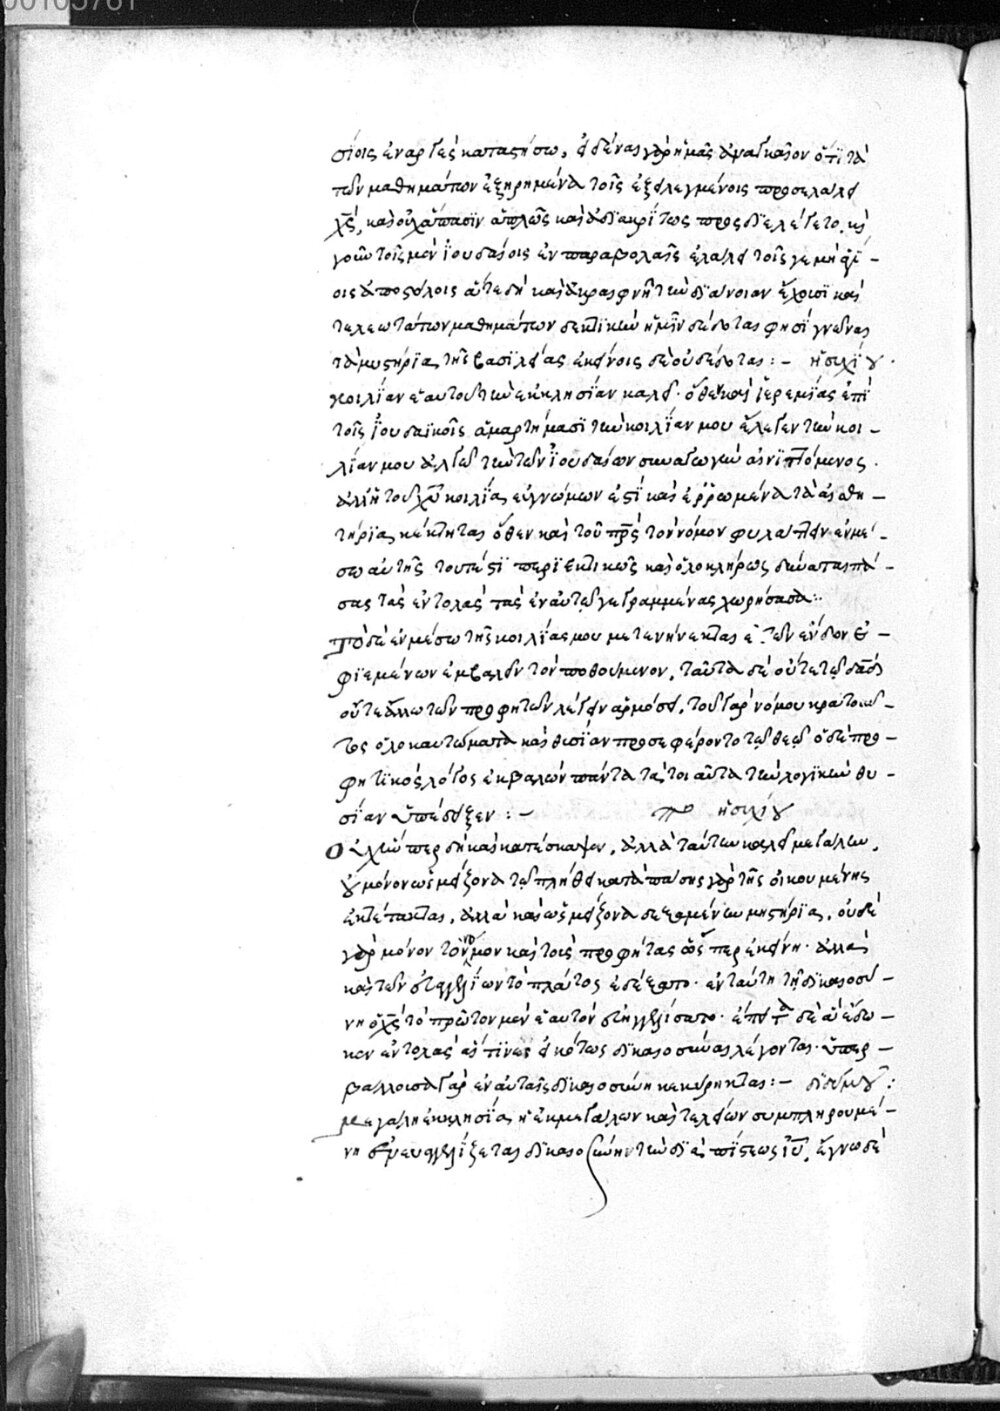 00105761
σίοις ἐναργὲς καταστήσω, εἰδέναι γὰρ ἡμᾶς ἀναγκαῖον ὅτι τὰ
τῶν μαθημάτων ἐξῃρημένα τοῖς ἐξειλεγμένοις προσελάλει
χς, καὶ οὐχ ἅπασιν ἁπλῶς καὶ ἀδιακρίτως προσδιελέγετο. καὶ
γοῦν τοῖς μὲν ἰουδαίοις ἐν παραβολαῖς ἐλάλει τοῖς γε μὴν ἁγί-
οις ἀποστόλοις ἅτε δὴ καὶ ἀκραιφνῆ τὴν διάνοιαν ἔχουσι καὶ
τελεωτάτων μαθημάτων δεκτικὴν ἡμῖν δέδοται φησὶ γνῶναι
τὰ μυστήρια τῆς βασιλείας ἐκείνοις δὲ οὐ δέδοται: – ἡσυχίου.
κοιλίαν ἑαυτοῦ τὴν ἐκκλησίαν καλεῖ. ὅθεν καὶ ἱερεμίας ἐπὶ
τοῖς ἰουδαϊκοῖς ἁμαρτήμασι τὴν κοιλίαν μου ἔλεγεν τὴν κοι-
λίαν μου ἀλγῶ τὴν τῶν ἰουδαίων συναγωγὴν αἰνιττόμενος.
ἀλλ' ἡ τοῦ χυ κοιλία εὐγνώμων ἐστὶ καὶ ἐρρωμένα τὰ αἰσθη-
τήρια κέκτηται ὅθεν καὶ τοῦ πρς τὸν νόμον φυλάττειν ἐν μέ-
σω αὐτῆς τουτέστι περιεκτικῶς καὶ ὁλοκλήρως δύναται πά-
σας τὰς ἐντολὰς τὰς ἐν αὐτῷ γεγραμμένας χωρήσασα:
Τὸ δὲ ἐν μέσω τῆς κοιλίας μου μετενήνεκται ἐκ τῶν ἔνδον ἐ-
φιεμένων ἐμβαλεῖν τὸν ποθούμενον, ταῦτα δὲ οὔτε τῷ δαδ
οὔτε ἄλλω τῶν προφητῶν λέγειν ἁρμόσει, τοῦ γὰρ νόμου κρατοῦν-
τος ὁλοκαυτώματα καὶ θυσίαν προσεφέροντο τῷ θεῷ ὁ δὲ προ-
φητικὸς λόγος ἐκβαλὼν πάντα τὰ τοιαῦτα τὴν λογικὴν θυ-
σίαν ὑπέδειξεν: – ἡσυχίου
Ο ἀλλὰ ταύτην καλεῖ μεγάλην,
οὐ μόνον ὡς μείζονα τῷ πλήθει κατὰ πάσης γὰρ τῆς οἰκουμένης
ἐκτέταται, ἀλλὰ καὶ ὡς μείζονα δεξαμένην μυστήρια, οὐδὲ
γὰρ μόνον τὸν νόμον καὶ τοὺς προφήτας ὥσπερ ἐκείνη. ἀλλὰ
καὶ τῶν εὐαγγελίων τὸ πλάτος ἐδέξατο. ἐν ταύτῃ τὴν δικαιοσύ-
νην ὁ χς τὸ πρῶτον μὲν ἑαυτὸν εὐηγγελίσατο. ἔπειτα δὲ ἃς ἔδω-
κεν ἐντολὰς αἵτινες εἰκότως δικαιοσύναι λέγονται. ὑπερ-
βάλλουσα γὰρ ἐν αὐταῖς δικαιοσύνη κεκήρυκται: – διδύμου:
Μεγάλη ἐκκλησία ἡ ἐκ μεγάλων καὶ τελείων συμπληρουμέ-
νη εὐαγγελίζεται δικαιοσύνην τὴν διὰ πίστεως ιυ, ἔγνω δὲ